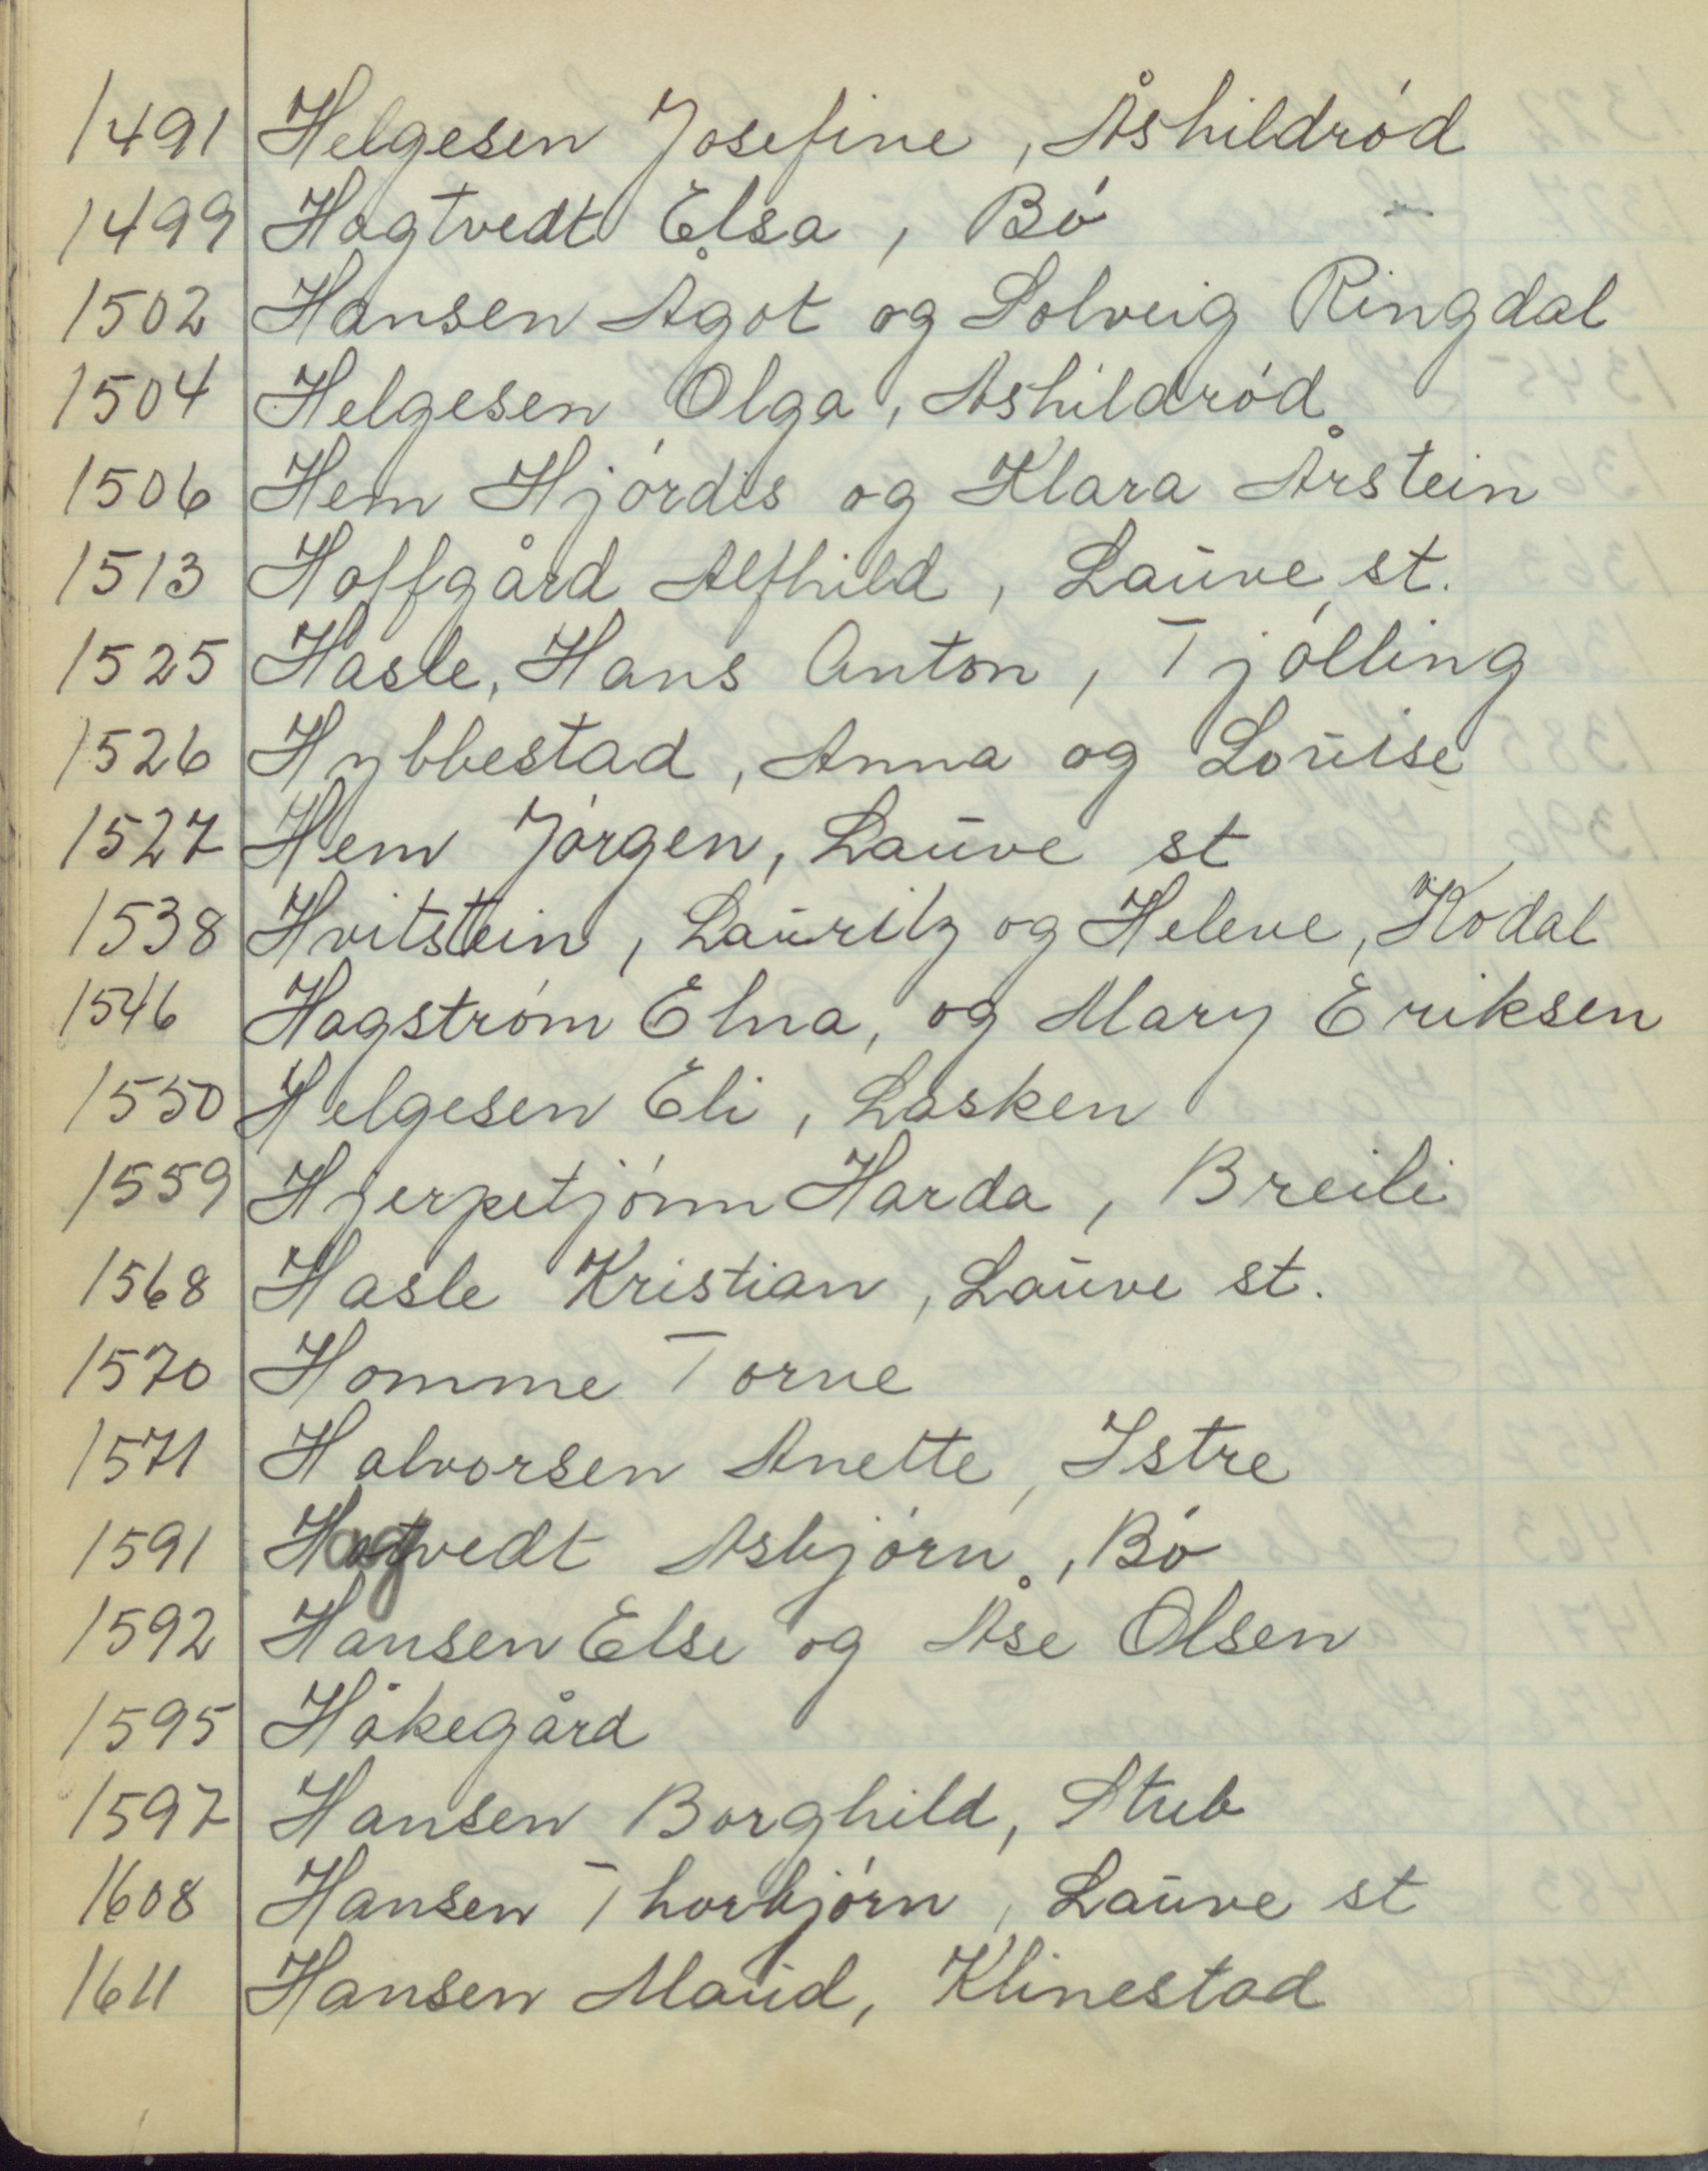 1491 Helgesen Josefine, Åshildrød
1499 Hagtvedt Elsa, Bø
1502 Hansen Ågot og Solveig Ringdal
1504 Helgesen Olga, Åshildrød
1506 Hem Hjørdis og Klara Årstein
1513 Hoffgård Alfhild, Lauve st.
1525 Hasle, Hans Anton, Tjølling
1526 Hybbestad, Anna og Louise
1527 Hem Jørgen, Lauve st
1538 Hvitstein, Lauritz og Helene, Kodal
1546 Hagstrøm Elna, og Mary Eriksen
1550 Helgesen Eli, Låsken
1559 Hjerpetjønn Harda, Breili
1568 Hasle Kristian, Lauve st.
1570 Homme Torne
1571 Halvorsen Anette, Istre
1591 Hagtvedt Asbjørn, Bø
1592 Hansen Else og Åse Olsen
1595 Håkegård
1597 Hansen Borghild, Stub
1608 Hansen Thorbjørn, Lauve st
1611 Hansen Maud, Klinestad